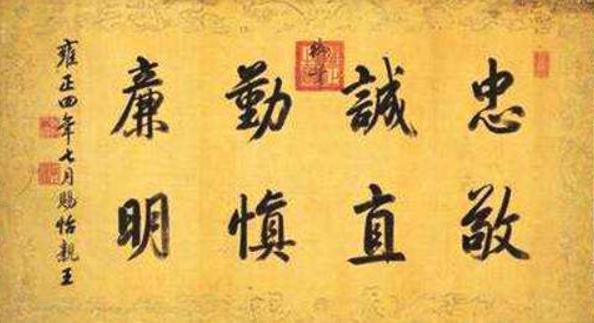 忠敬
誠直
勤慎
廉明
雍正四年七月賜怡親王
御筆